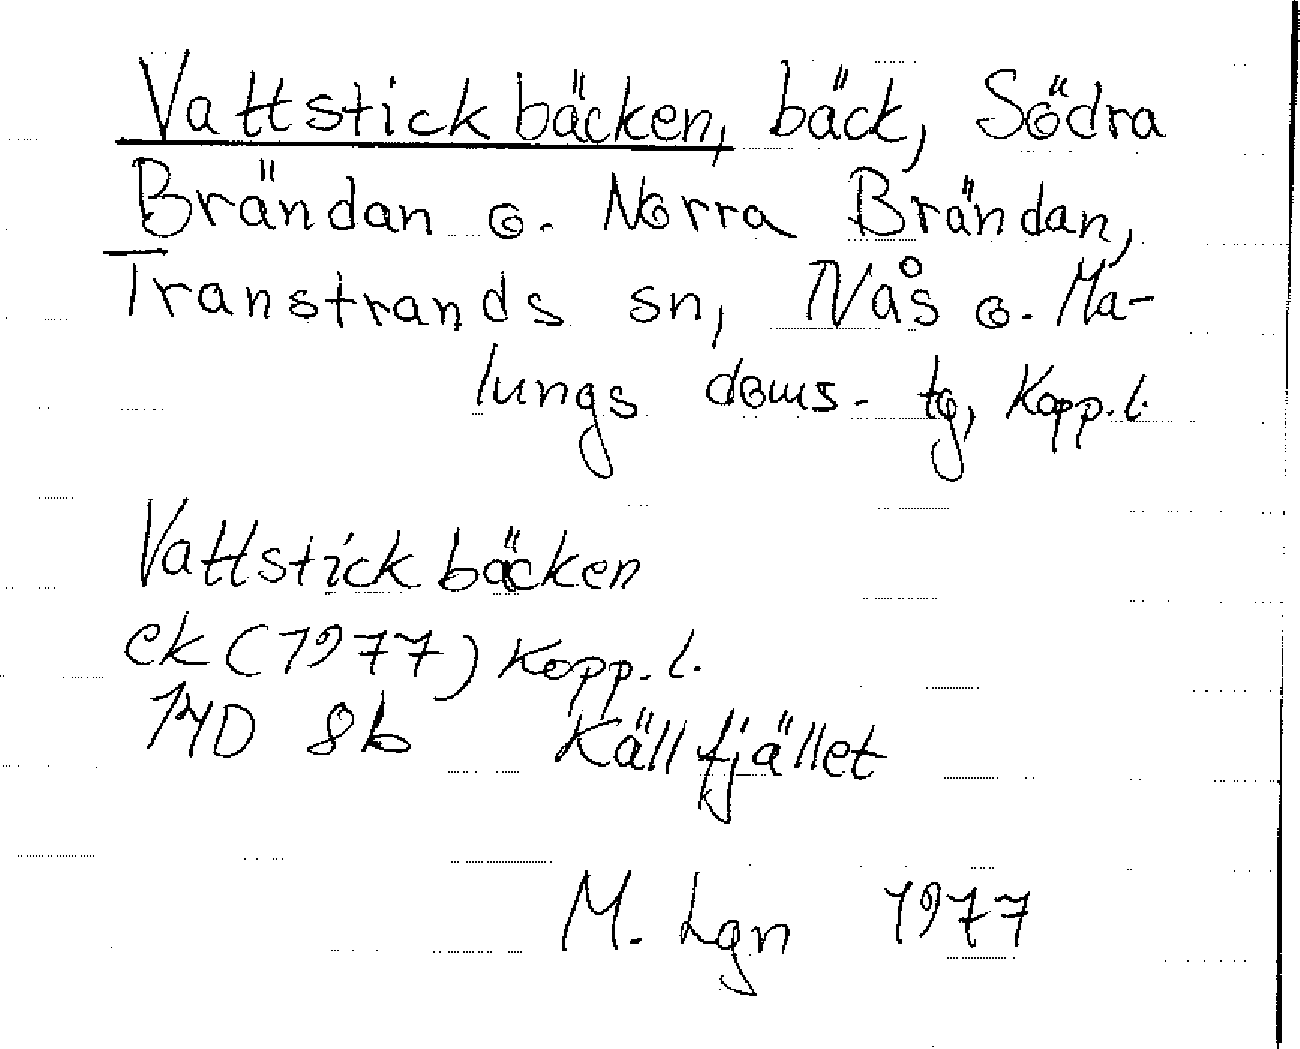 Vattstickbäcken, bäck, Södra
Brändan o. Norra Brändan,
Transtrands sn, Nås o. Ma-
lungs doms. tg, Kopp. l.
Vattstickbäcken
ek (1977) Kopp. l.
14D 8b Källfjället
M. Lgn 1977